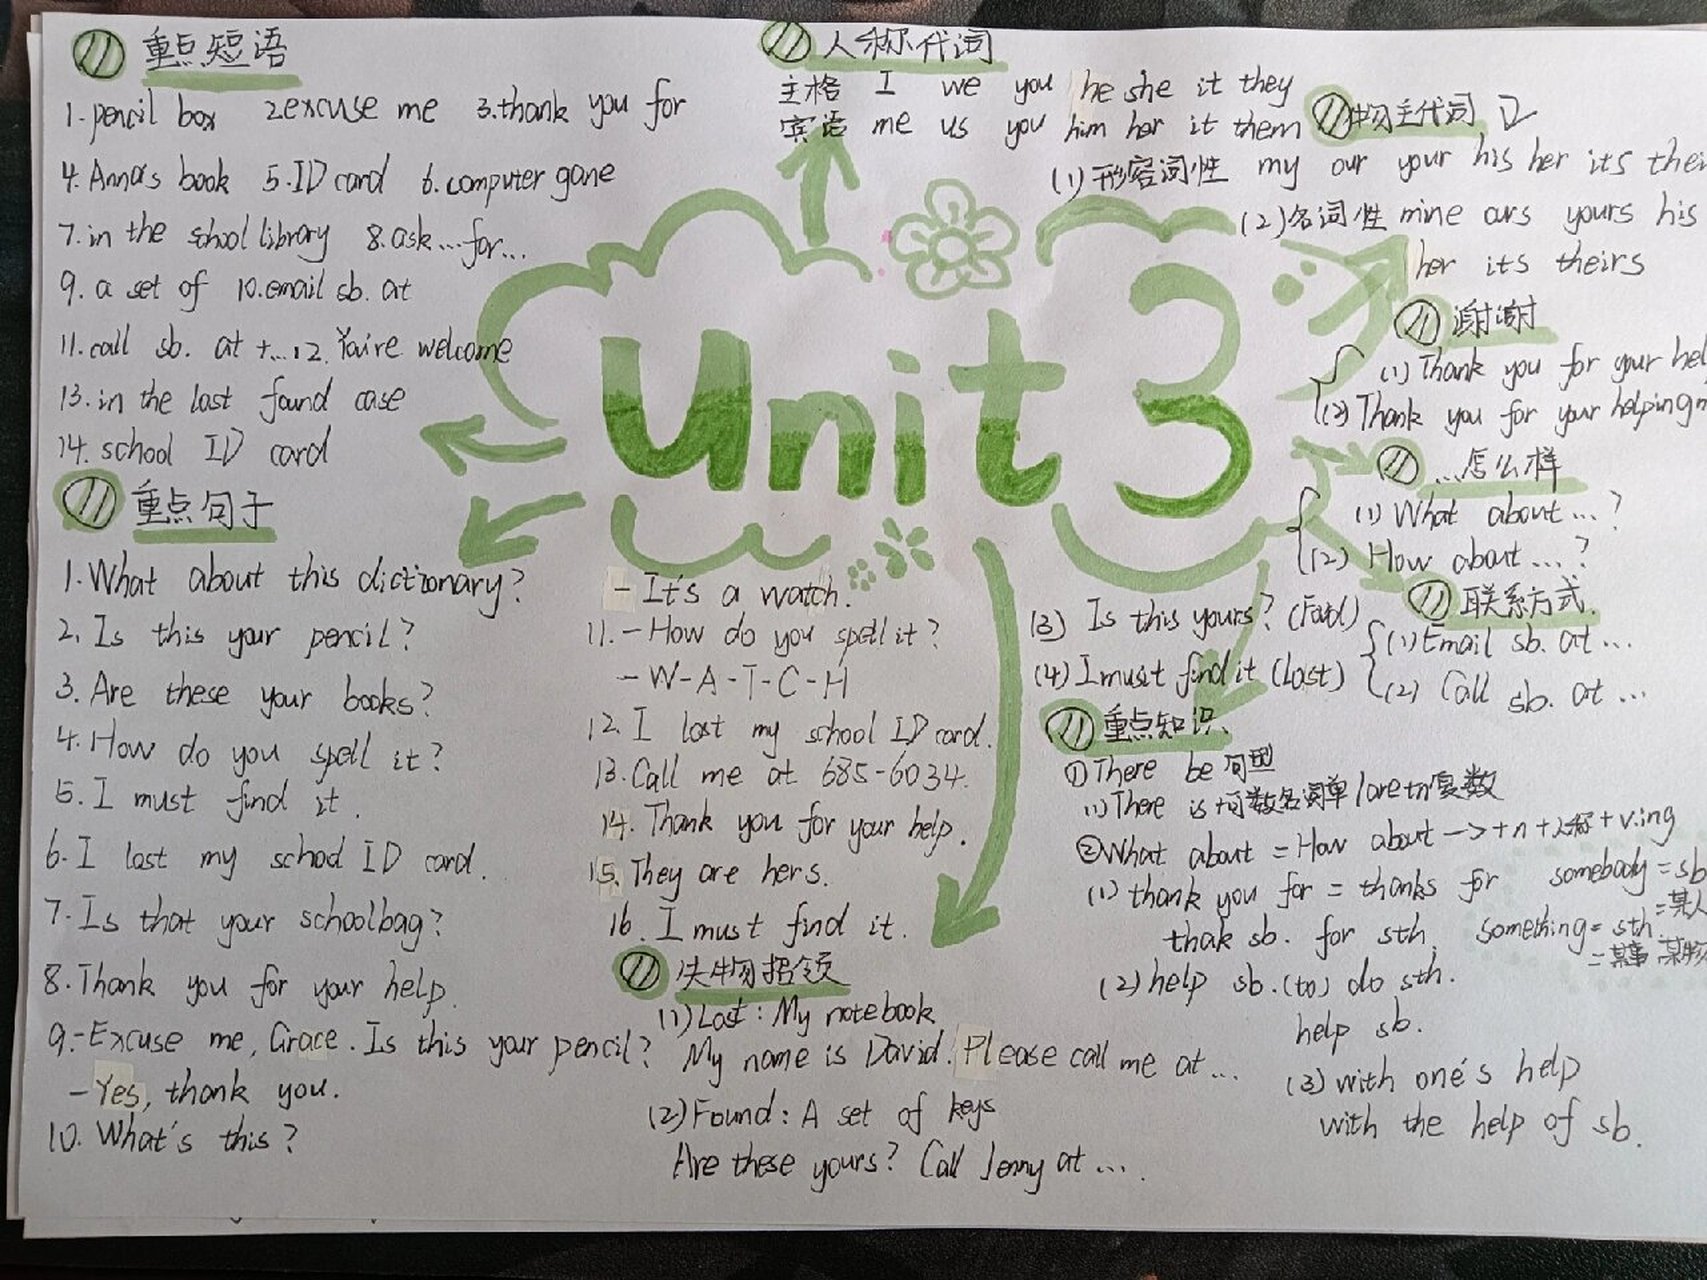 重点短语
1.pencil box 2.excuse me 3.thank you for
4.Anna's book 5.ID card 6.computer game
7.in the school library 8.ask...for...
9.a set of 10.email sb. at
11.call sb. at +...12.You're welcome
13.in the lost found case
14.school ID card
重点句子
1.What about this dictionary?
2.Is this your pencil?
3.Are these your books?
4.How do you spell it?
5.I must find it.
6.I lost my school ID card.
7.Is that your schoolbag?
8.Thank you for your help.
9.-Excuse me, Grace. Is this your pencil?
-Yes, thank you.
10.What's this?
- It's a watch.
11.-How do you spell it?
-W-A-T-C-H
12.I lost my school ID card.
13.Call me at 685-6034.
14.Thank you for your help.
15.They are hers.
16.I must find it.
失物招领
(1)Lost: My notebook
My name is David. Please call me at...
(2)Found: A set of keys
Are these yours? Call Jenny at...
Unit 3
人称代词
主格 I we you he she it they
宾语 me us you him her it them
物主代词
(1)形容词性 my our your his her its thei
(2)名词性 mine ours yours his
her its theirs
谢谢
(1)Thank you for your hel
(2)Thank you for your helping m
...怎么样
(1)What about...?
(2)How about...?
联系方式.
(1)Email sb. at...
(2)Call sb. at...
(3) Is this yours? (Found)
(4)I must find it (Lost)
重点知识
①There be 句型
(1)There is +可数名词单/are+n复数
②What about = How about → +n +人称 + v.ing
(1)thank you for = thanks for
thak sb. for sth.
(2)help sb.(to) do sth.
help sb.
(3)with one's help
with the help of sb.
somebody = sb
=某人
something = sth.
=某事 某物